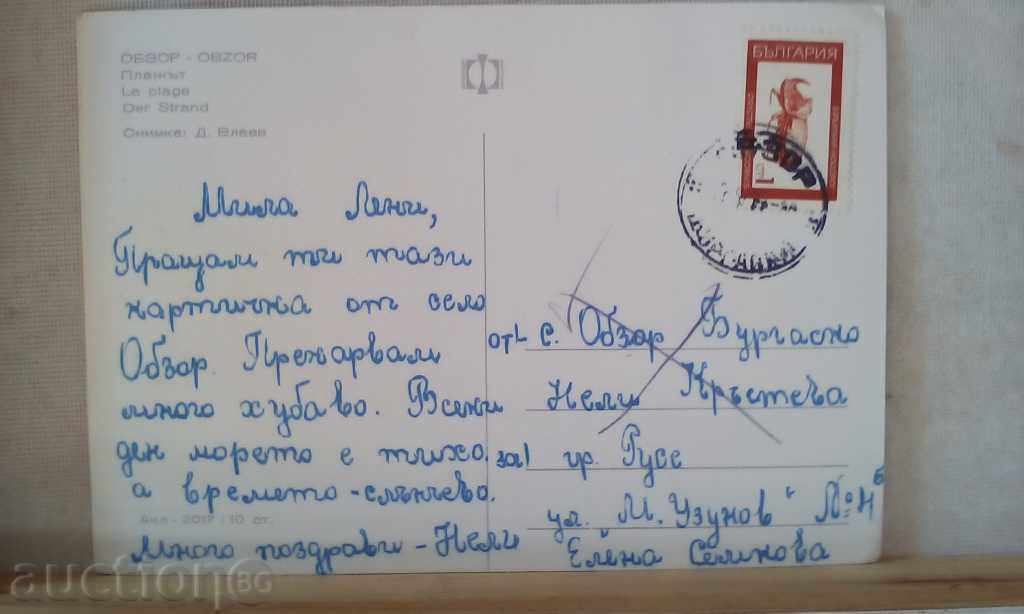 ОБЗОР - OBZOR
Плажът
La plage
Der Strand
Снимка: Д. Влаев
БЪЛГАРИЯ
Мила Ленчи,
Пращам ти тази
картичка от село
Обзор. Прекарвам
много хубаво. Всеки
ден морето е тихо,
а времето - слънчево.
Акл - 2017 : 10 ст.
Много поздрави - Нели
от с. Обзор Бургаско
Нели Кръстева
за гр. Русе
ул. "М. Узунов" №4б
Елена Семкова
auction BG